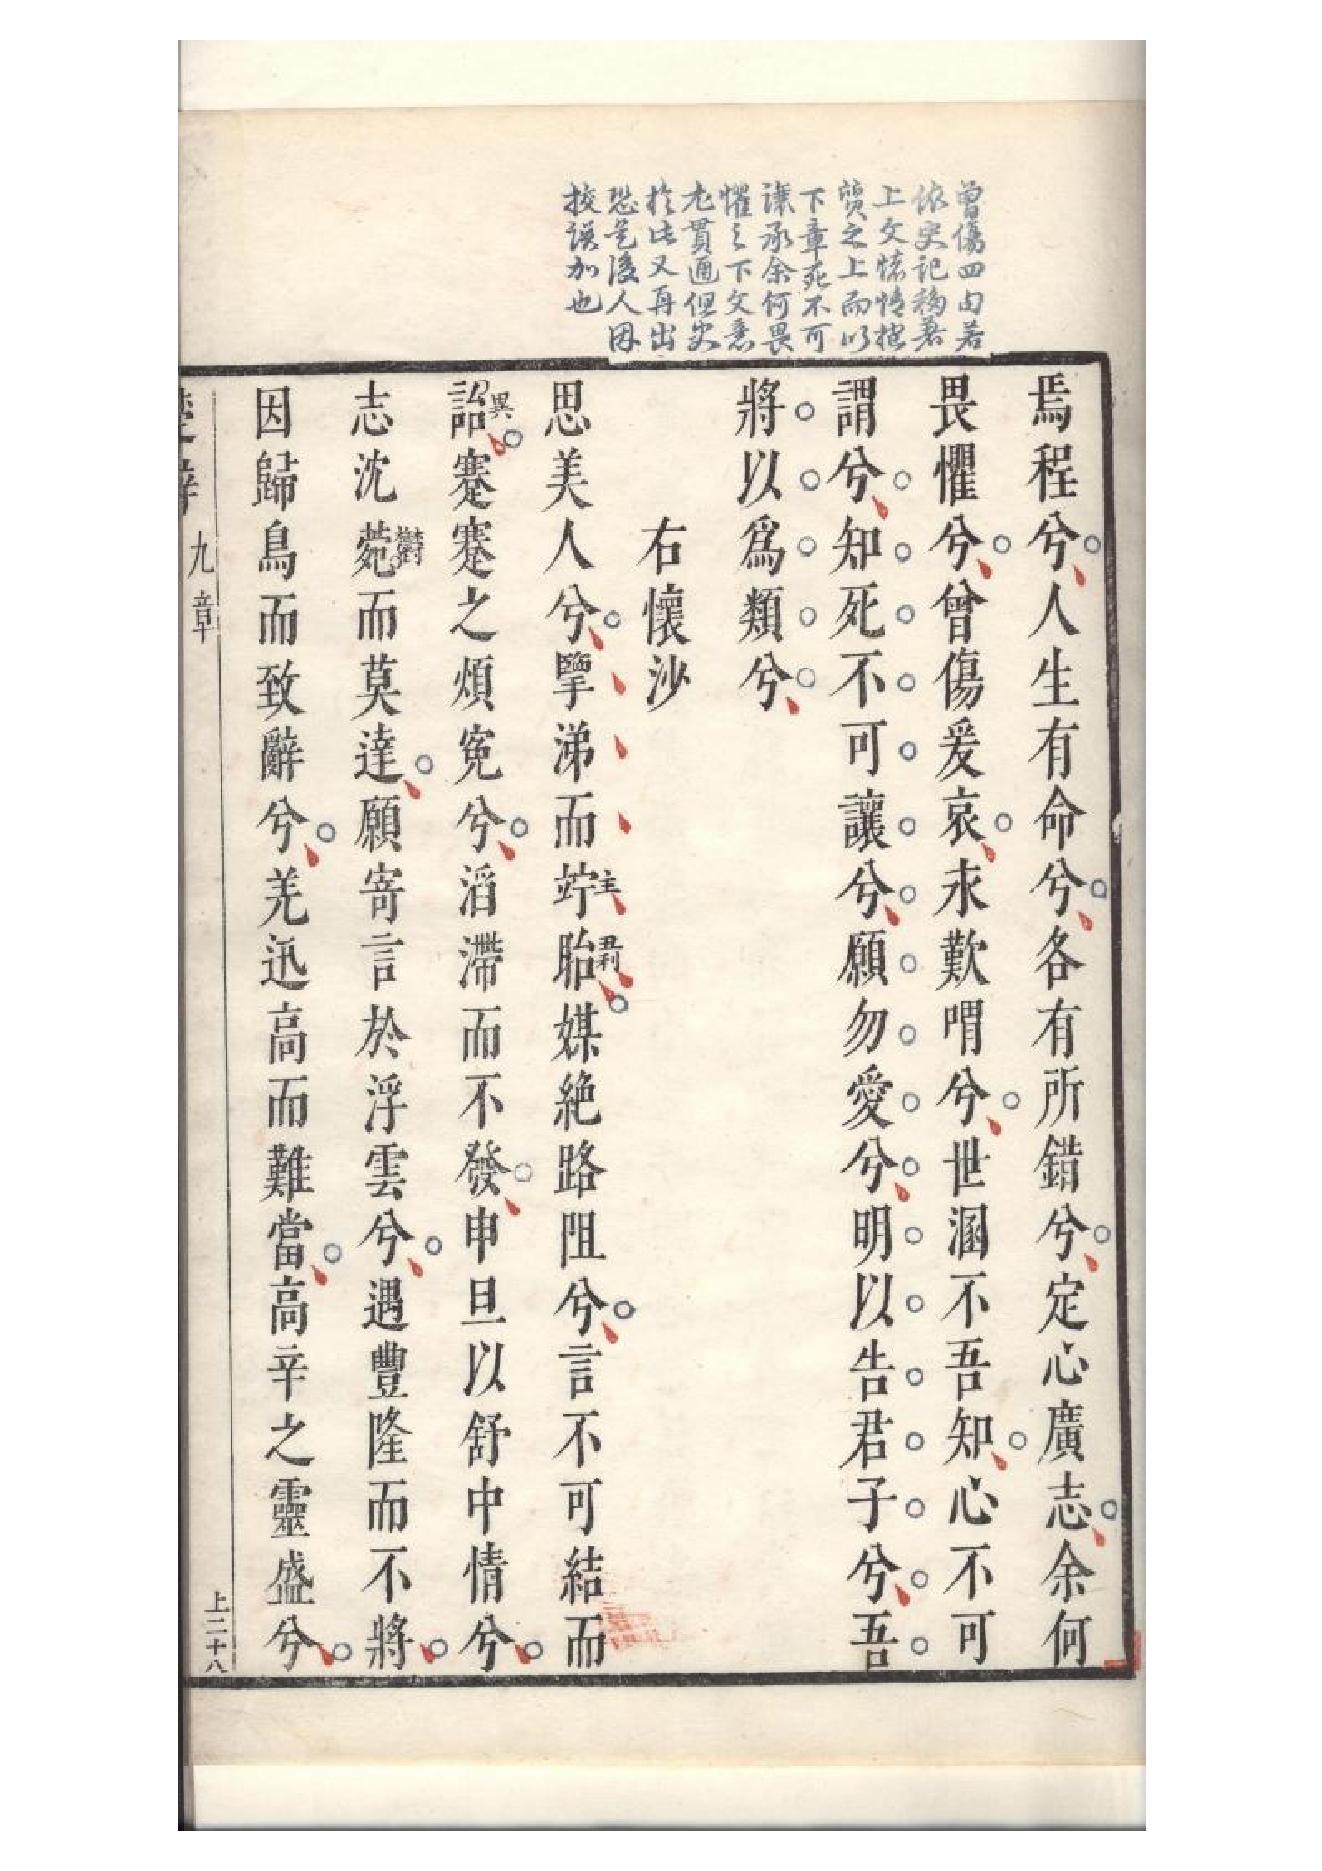 曾傷四句若
依史記移著
上文懷情抱
質之上而以
下章死不可
讓承余何畏
懼之下文意
尤貫通但史
於此又再出
恐是後人因
校誤加也
焉程兮人生有命兮各有所錯兮定心廣志余何
畏懼兮曾傷爰哀永歎喟兮世溷不吾知心不可
謂兮知死不可讓兮願勿愛兮明以告君子兮吾
將以爲類兮
右懷沙
思美人兮擥涕而竚主胎丑利媒絶路阻兮言不可結而
詒異蹇蹇之煩寃兮滔滯而不發申旦以舒中情兮
志沈菀鬱而莫達願寄言於浮雲兮遇豐隆而不將
因歸鳥而致辭兮羌迅高而難當高辛之靈盛兮
楚辭 九章 上二十八